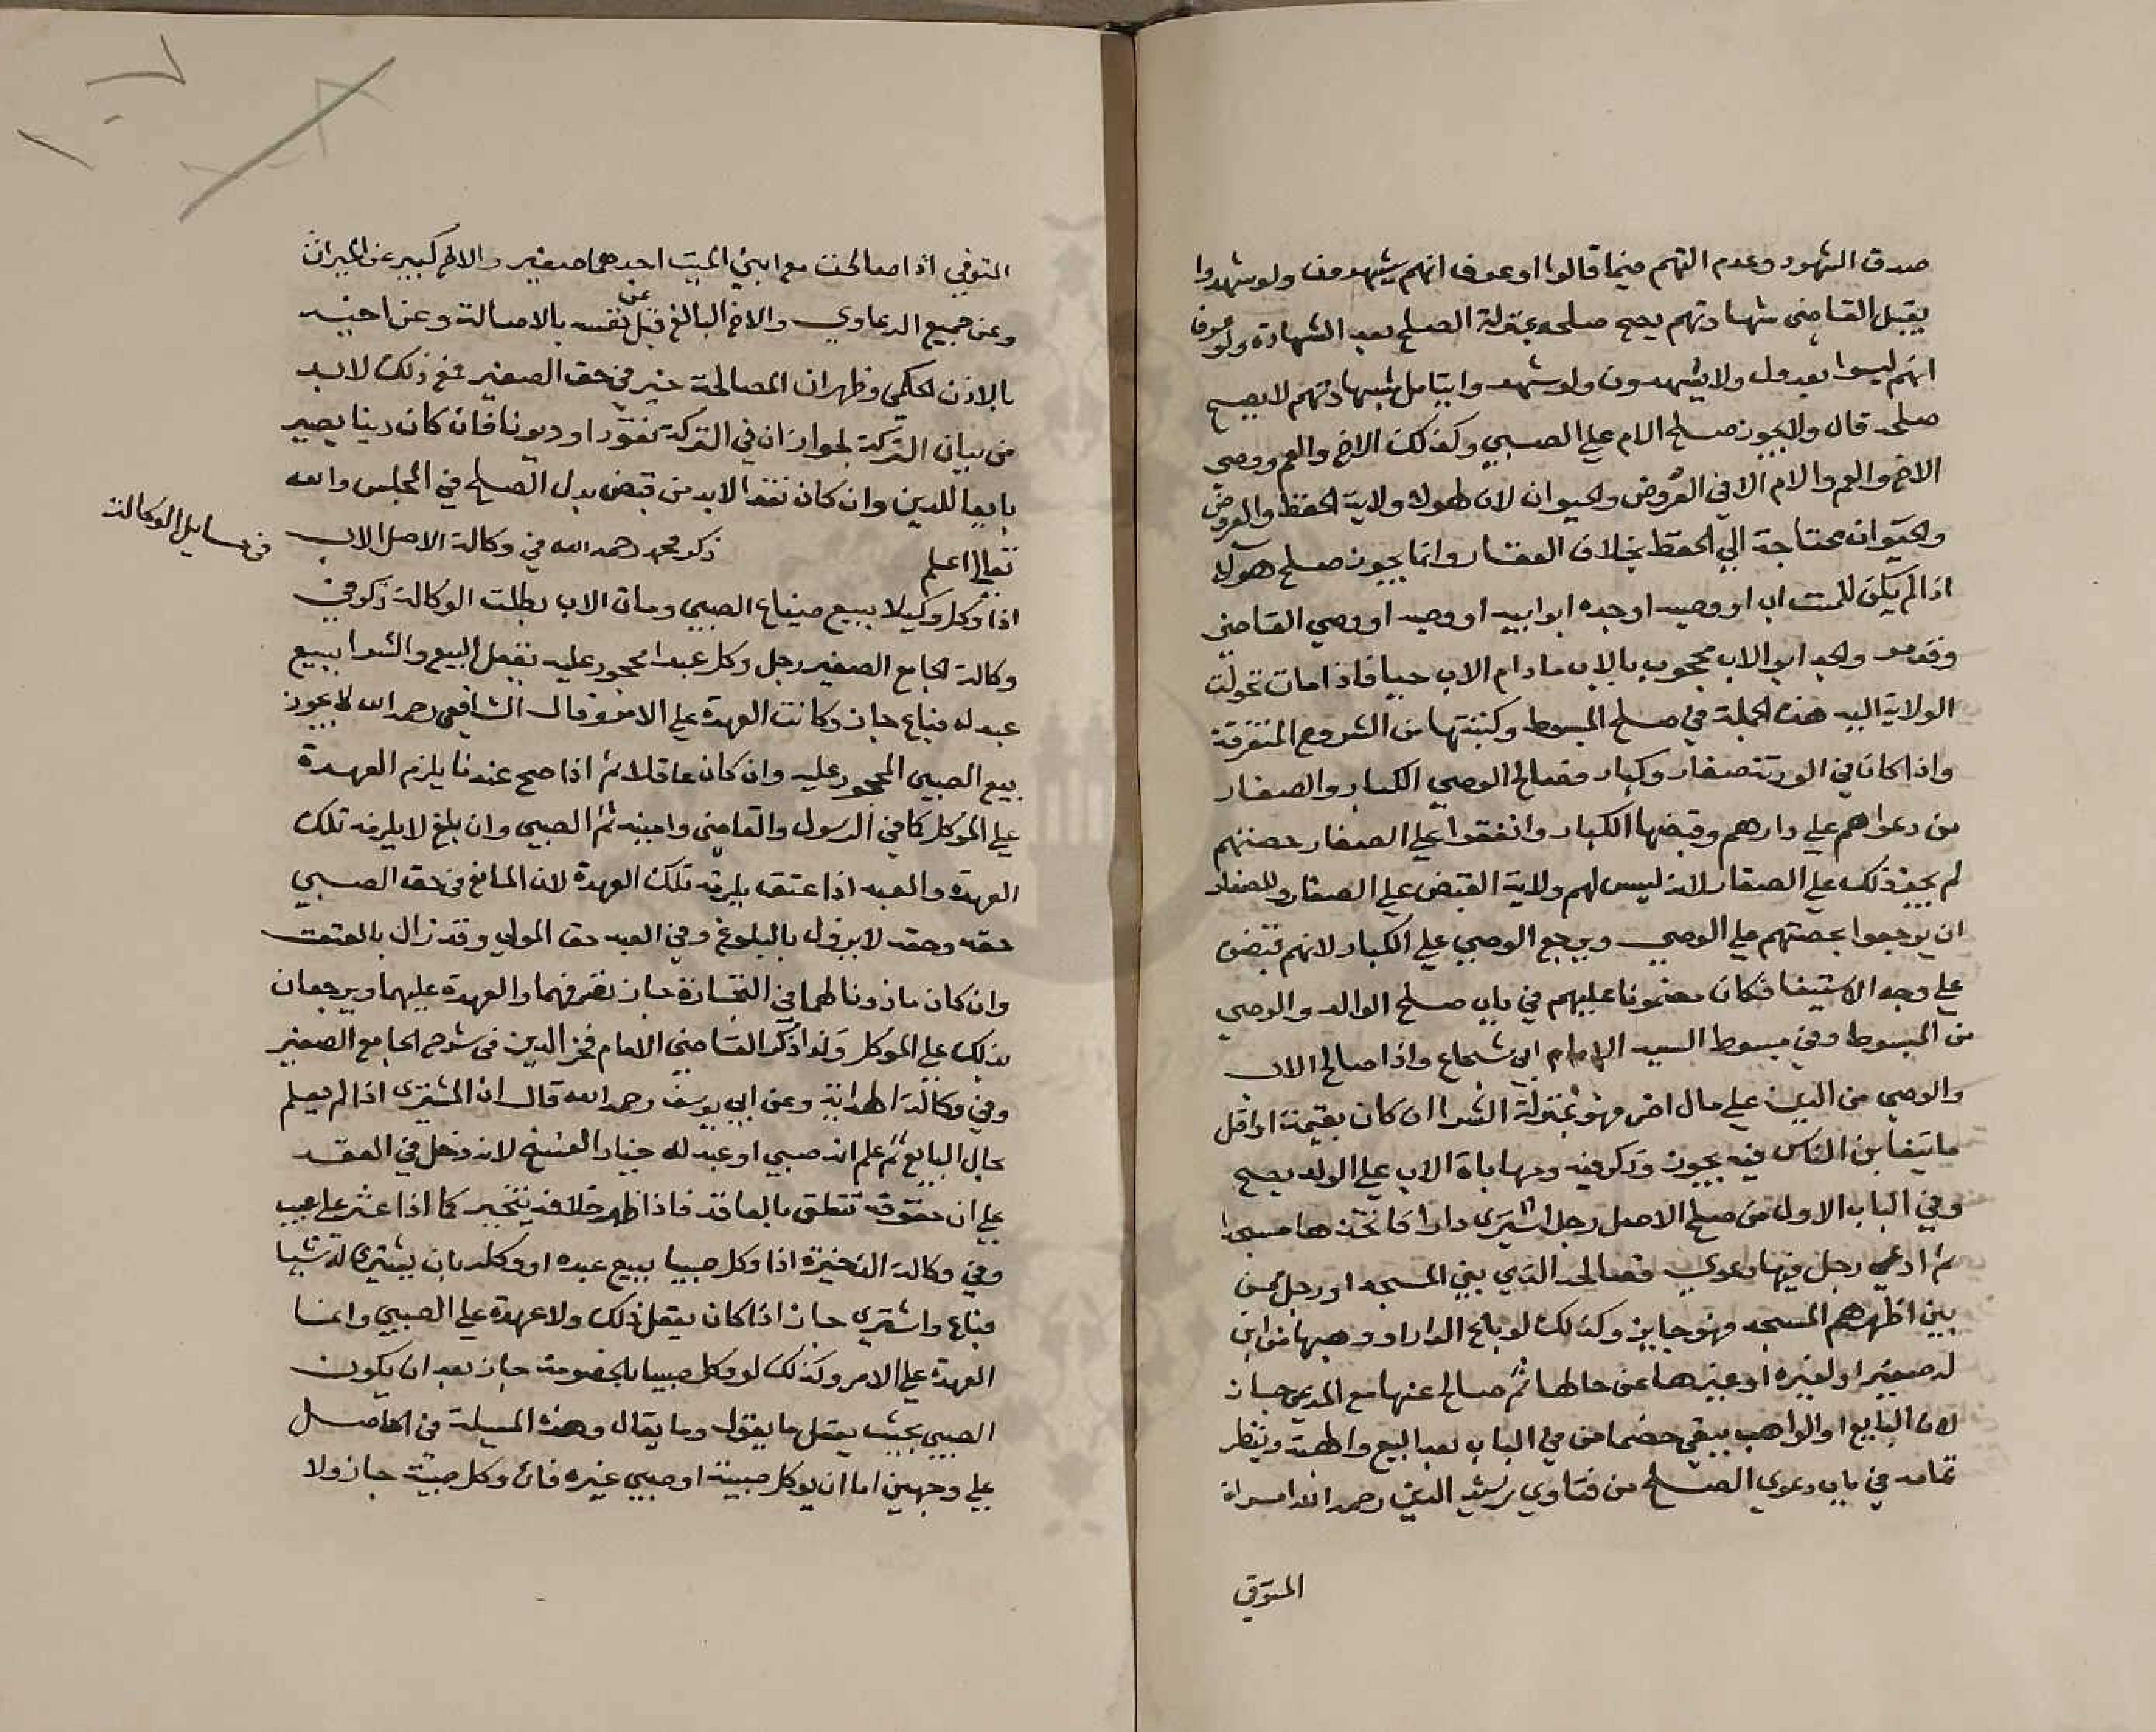 صدق الشهود وعدم التهم فيما قالوا او عرف انهم يشهدون ولو شهدوا
يقبل القاضي شهادتهم يصح صلحه بمنزلة الصلح بعد الشهادة ولو عرف
انهم ليسوا بعدول ولا يشهدون ولو شهدوا بشهادتهم لا يصح
صلحه قال ولا يجوز صلح الام علي الصبي وكذلك الاخ والعم ووصي
الاخ والعم والام الا في العروض والحيوان لان لهولا ولاية الحفظ والعروض
والحيوان محتاجة الي الحفظ بخلاف العقار وانما يجوز صلح هولا
اذا لم يكن للميت اب او وصيه او جده ابو ابيه او وصيه او وصي القاضي
وقد مر والجد ابو الاب محجوب بالاب ما دام الاب حيا فاذا مات تحولت
الولاية اليه هذه الجملة في صلح المبسوط وكتبتها من الشروح المتفرقة
واذا كان في الورثة صغار وكبار فصالح الوصي الكبار والصغار
من دعواهم علي دارهم وقبضها الكبار وانفقوا علي الصغار حصتهم
لم يجز ذلك علي الصغار لانه ليس لهم ولاية القبض علي الصغار وللصغار
ان يرجعوا بحصتهم علي الوصي ويرجع الوصي علي الكبار لانهم قبضوا
علي وجه الاستيفا فكان مضمونا عليهم في باب صلح الوالد والوصي
من المبسوط وفي مبسوط السيد الامام ابي شجاع واذا صالح الاب
والوصي من الدين علي مال اخر فهو بمنزلة الشرا ان كان بقيمته او اقل
ما يتغابن الناس فيه يجوز وذكر فيه ومحاباة الاب علي الولد يصح
وفي الباب الاول من صلح الاصل رجل اشترى دارا فاتخذها مسجدا
ثم ادعي رجل فيها دعوي فصالحه الذي بني المسجد او رجل من
بين اظهرهم المسجد فهو جايز وكذلك لو باع الدار او وهبها من ابن
له صغير او لغيره او غيرها عن حالها ثم صالح عنها مع المدعي جاز
لان البايع او الواهب يبقي خصما في الباب بعد البيع والهبة وينظر
تمامه في باب دعوي الصلح من فتاوي رشيد الدين رحمه الله امراة
المتوفي
المتوفي اذا صالحت مع ابني الميت احدهما صغير والاخر كبير عن الميراث
وعن جميع الدعاوي والاخ البالغ قبل عن نفسه بالاصالة وعن اخيه
بالاذن الحكمي وظهر ان المصالحة خير في حق الصغير فمع ذلك لا بد
من بيان التركة لجواز ان في التركة نقودا او ديونا فان كان دينا يصير
بايعا للدين وان كان نقدا لا بد من قبض بدل الصلح في المجلس والله
تعالي اعلم ذكر محمد رحمه الله في وكالة الاصل الاب
في مسايل الوكالة
اذا وكل وكيلا ببيع ضياع الصبي ومات الاب بطلت الوكالة ذكر في
وكالة الجامع الصغير رجل وكل عبدا محجور عليه بفعل البيع والشرا ببيع
عبد له فباع جاز وكانت العهدة علي الامر وقال الشافعي رحمه الله لا يجوز
بيع الصبي المحجور عليه وان كان عاقلا ثم اذا صح عندنا يلزم العهدة
علي الموكل كما في الرسول والقاضي وامينه ثم الصبي وان بلغ لا يلزمه تلك
العهدة والعبد اذا عتق يلزمه تلك العهدة لان المانع في حق الصبي
حقه وحقه لا يزول بالبلوغ وفي العبد حق المولي وقد زال بالعتق
وان كان ماذونا لهما في التجارة جاز تصرفهما والعهدة عليهما ويرجعان
بذلك علي الموكل وكذا ذكر القاضي الامام فخر الدين في شرح الجامع الصغير
وفي وكالة الهداية وعن ابي يوسف رحمه الله قال ان المشتري اذا لم يعلم
بحال البايع ثم علم انه صبي او عبد له خيار الفسخ لانه دخل في العقد
علي ان حقوقه تتعلق بالعاقد فاذا ظهر خلافه يتخير كما اذا عثر علي عيب
وفي وكالة الذخيرة اذا وكل صبيا ببيع عبده او وكله بان يشتري له شيا
فباع واشتري جاز اذا كان يعقل ذلك ولا عهدة علي الصبي وانما
العهدة علي الامر وكذلك لو وكل صبيا بالخصومة جاز بعد ان يكون
الصبي بحيث يعقل ما يقول وما يقال وهذه المسيلة في الحاصل
علي وجهين اما ان يوكل صبيه او صبي غيره فان وكل صبيه جاز ولا